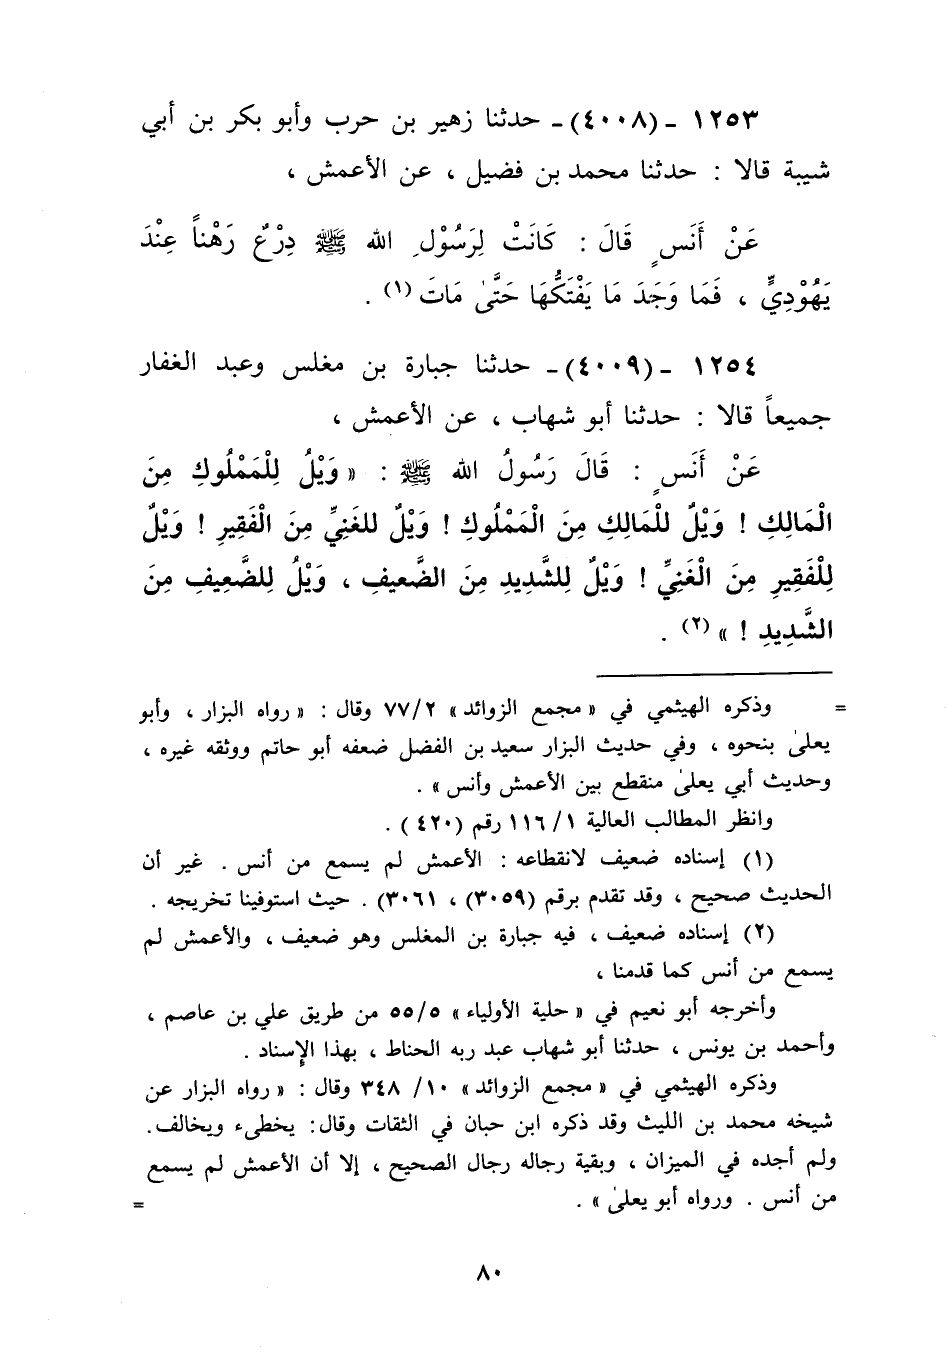 ١٢٥٣ - (٤٠٠٨) - حدثنا زهير بن حرب وأبو بكر بن أبي
شيبة قالا : حدثنا محمد بن فضيل ، عن الأعمش ،
عَنْ أَنَسٍ قَالَ : كَانَتْ لِرَسُوْلِ الله ﷺ دِرْعٌ رَهْناً عِنْدَ
يَهُوْدِيٍّ ، فَمَا وَجَدَ مَا يَفْتَكُّهَا حَتَّىٰ مَاتَ (١) .
١٢٥٤ - (٤٠٠٩) - حدثنا جبارة بن مغلس وعبد الغفار
جميعاً قالا : حدثنا أبو شهاب ، عن الأعمش ،
عَنْ أَنَسٍ : قَالَ رَسُولُ الله ﷺ : « وَيْلُ لِلْمَمْلُوكِ مِنَ
الْمَالِكِ ! وَيْلٌ لِلْمَالِكِ مِنَ الْمَمْلُوكِ ! وَيْلٌ للغَنِيِّ مِنَ الْفَقِيرِ ! وَيْلٌ
لِلْفَقِيرِ مِنَ الْغَنِيِّ ! وَيْلٌ لِلشَّدِيدِ مِنَ الضَّعيفِ ، وَيْلُ لِلضَّعِيفِ مِنَ
الشَّدِيدِ ! » (٢) .
= وذكره الهيثمي في « مجمع الزوائد » ٧٧/٢ وقال : « رواه البزار ، وأبو
يعلىٰ بنحوه ، وفي حديث البزار سعيد بن الفضل ضعفه أبو حاتم ووثقه غيره ،
وحديث أبي يعلىٰ منقطع بين الأعمش وأنس » .
وانظر المطالب العالية ١١٦/١ رقم (٤٢٠) .
(١) إسناده ضعيف لانقطاعه : الأعمش لم يسمع من أنس . غير أن
الحديث صحيح ، وقد تقدم برقم (٣٠٥٩) ، ٣٠٦١) . حيث استوفينا تخريجه .
(٢) إسناده ضعيف ، فيه جبارة بن المغلس وهو ضعيف ، والأعمش لم
يسمع من أنس كما قدمنا ،
وأخرجه أبو نعيم في « حلية الأولياء » ٥٥/٥ من طريق علي بن عاصم ،
وأحمد بن يونس ، حدثنا أبو شهاب عبد ربه الحناط ، بهذا الإسناد .
وذكره الهيثمي في « مجمع الزوائد » ١٠/ ٣٤٨ وقال : « رواه البزار عن
شيخه محمد بن الليث وقد ذكره ابن حبان في الثقات وقال: يخطىء ويخالف.
ولم أجده في الميزان ، وبقية رجاله رجال الصحيح ، إلا أن الأعمش لم يسمع
من أنس . ورواه أبو يعلىٰ » . =
٨٠